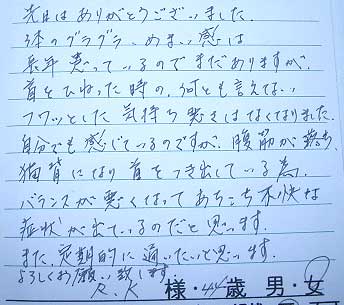 先日はありがとうございました。
体のグラグラ、めまい感は
長年患っているのでまだありますが、
首をひねった時の、何とも言えない
フワッとした気持ち悪さはなくなりました。
自分でも感じているのですが、腹筋が弱く
猫背になり首をつき出している為、
バランスが悪くなってあちこち不快な
症状が出ているのだと思います。
また、定期的に通いたいと思います。
よろしくお願い致します。
R.K 様・44歳 男・女